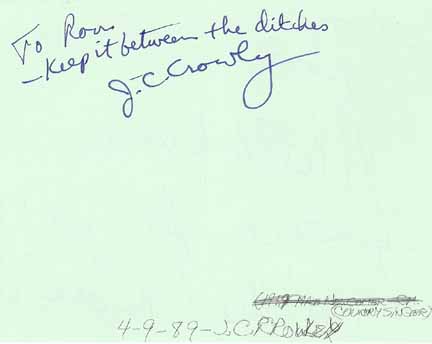 To Ron
—Keep it between the ditches
J.C Crowly
(COUNTRY SINGER)
4-9-89-J.C.